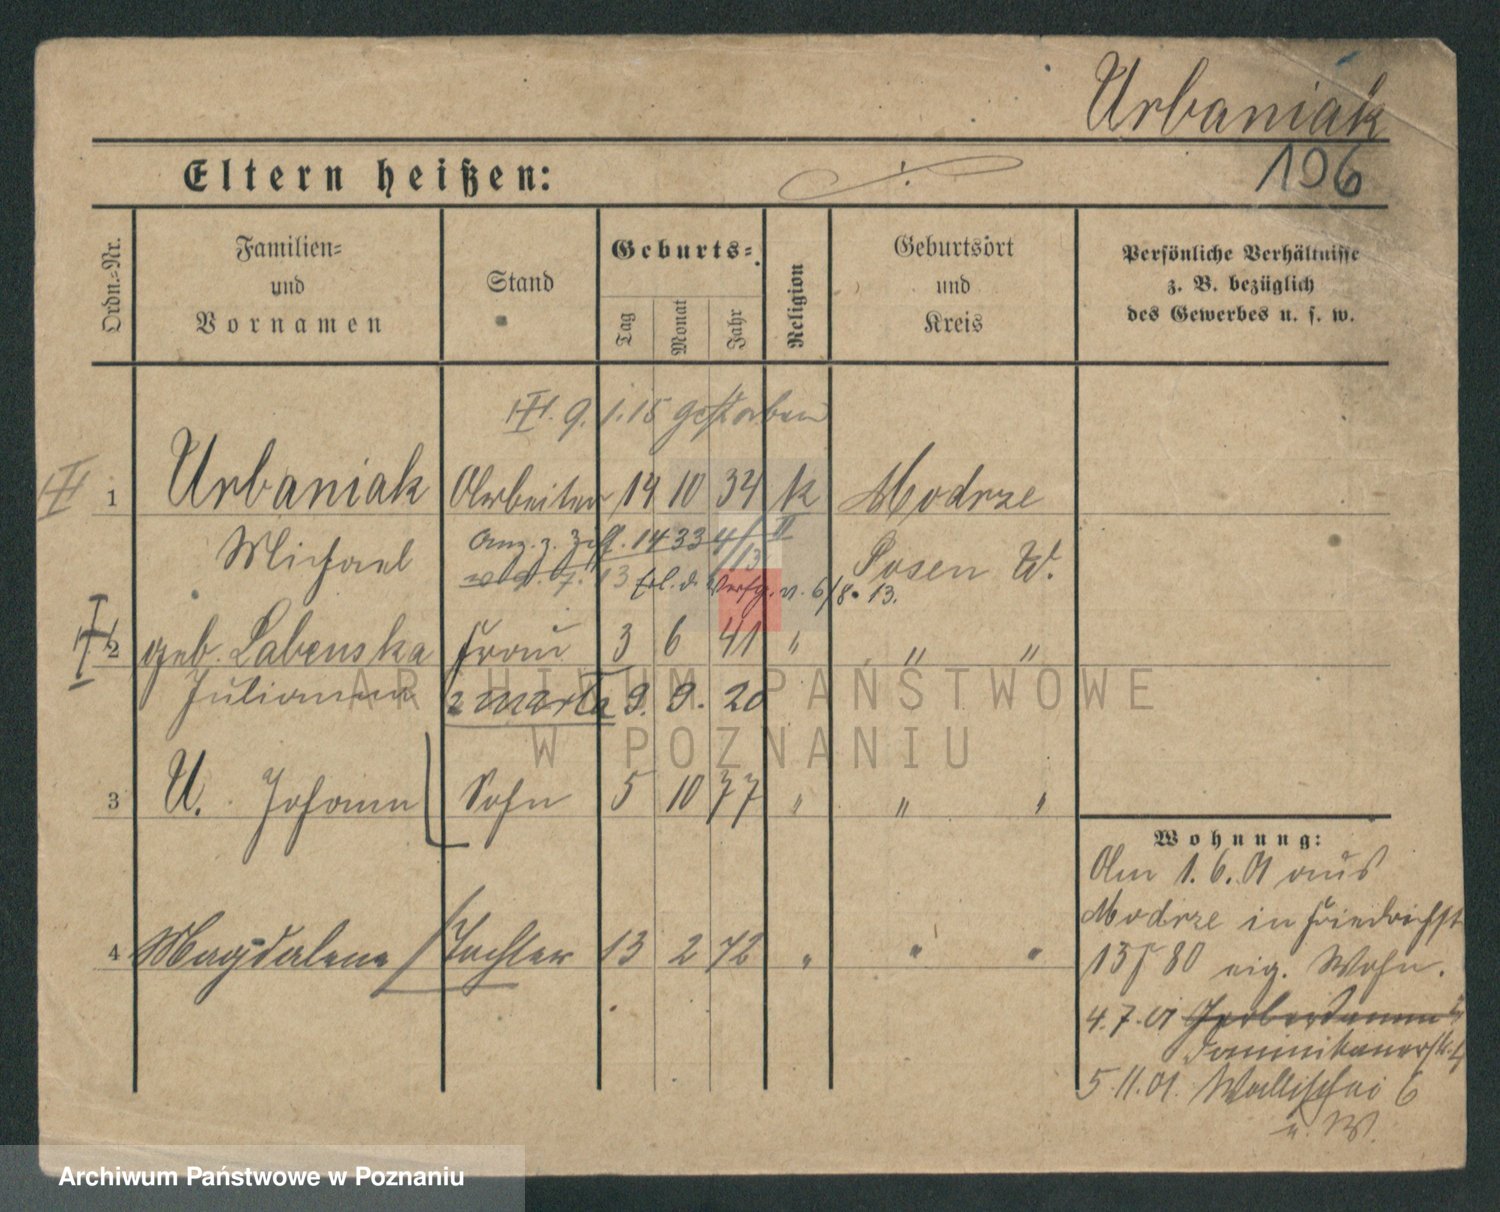 Urbaniak
Eltern heißen:
196
Ordn.-Nr.
Familien-
und
Vornamen
Stand
Geburts-
Tag
Monat
Jahr
Religion
Geburtsort
und
Kreis
Persönliche Verhältnisse
z. B. bezüglich
des Gewerbes u. s. w.
9.1.15 gestorben
1 Urbaniak Arbeiter 14 10 34 k Modrze
Michael Posen W.
Anz. z. 14 33 4/13 II
13 erl. d. Verfg. v. 6/8. 13.
2 geb. Labenska Frau 3 6 41 " " "
Julianna marta 9. 9. 20
3 U. Johann Sohn 5 10 77 " " "
4 Magdalene Tochter 13 2 72 " " "
Wohnung:
Am 1.6.01 aus
Modrze in Friedrichst
13 / 80 eig. Wohn.
4.7.01
Dominikanerstr. 4
5.11.01. Wallischei 6
u. W.
ARCHIWUM PAŃSTWOWE
W POZNANIU
Archiwum Państwowe w Poznaniu